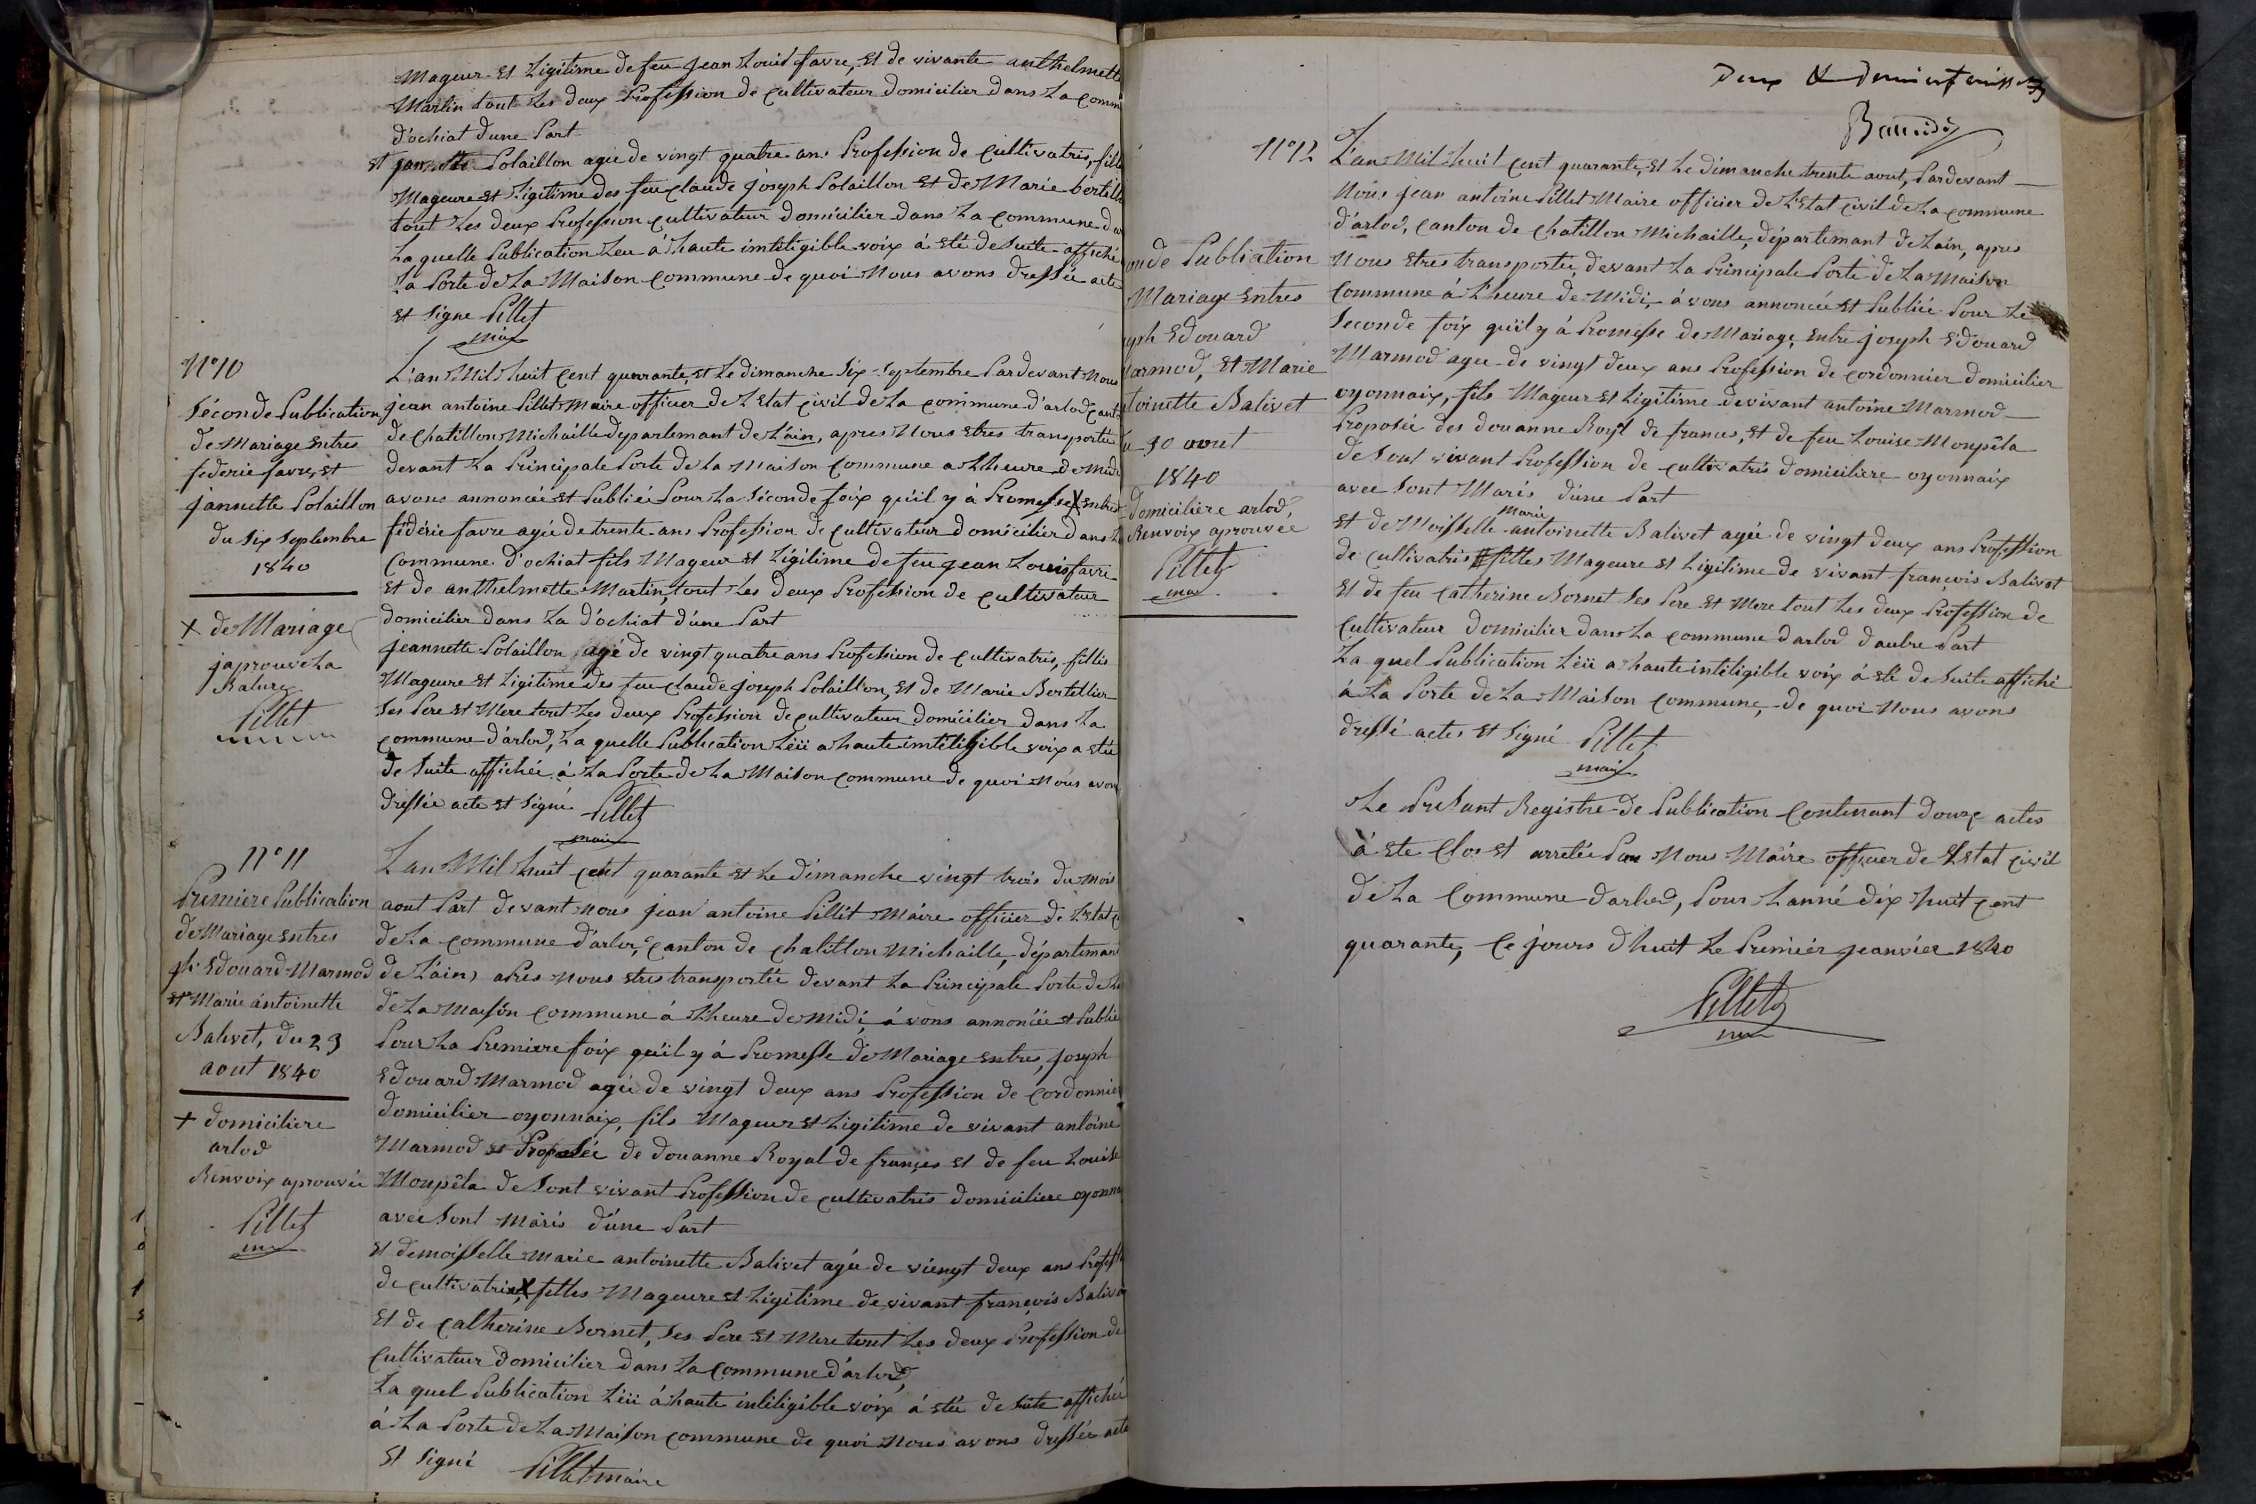 Mageur Et Ligitime de feu jean Louis favre, Et de vivante anthelmette
Martin tout Les deux Profession de Cultivateur domicilier dans La Comm
d'ochiat dune Part
Et Polaillon agée de vingt quatre ans Profession de Cultivatris, fille
Mageure Et Ligitime des feu Claude joseph Polaillon Et de Marie
tout Les deux Profession Cultivateur domicilier dans La Commune
La quelle Publication Leu á haute inteligible voix á eté de Suite affiché
La Porte de La Maison Commune de quoi Nous avons dressée acte
Et Signe Pillet
maire
N° 10
Séconde Publication
de Mariage Entres
féderie favre, Et
jannette Polaillon
du Six Septembre
1840
X de Mariage
japrouve La
Rature
Pillet
L'an Mil huit Cent quarante, Et Le dimanche Six Septembre Pardevant Nous
jean antoine Pillet Maire officier de L'Etat Civil de La Commune d'arlod Cant
de Chatillon Michaille departemant de L'ain, apres Nous Etres transportée
devant La Principale Porte de La Maison Commune a L'heure de Midi
avons annoncée Et Publiée Pour La Séconde foix qu'il y á Promesse X Entres
féderie favre agée de trente ans Profession de Cultivateur domicilier dans
Commune d'ochiat fils Mageur Et Ligitime de feu jean Louis favre
Et de anthelmette Martin, tout Les deux Profession de Cultivateur
domicilier dans La d'ochiat d'une Part
jeannette Polaillon agé de vingt quatre ans Profession de Cultivatris, filles
Mageure Et Ligitime des feu Claude joseph Polaillon, Et de Marie Bertellier
Ses Pere Et Mere tout Les deux Profession de Cultivateur domicilier dans La
Commune d'arlod, La quelle Publication Léü a haute inteligible voix a etée
de Suite affichée á La Porte de La Maison Commune de quoi Nous avon
dressée acte Et Signé Pillet
maire
N° 11
Premiere Publication
de Mariage Entres
ph Edouard Marmod
Et Marie antoinette
Balivet, du 23
aout 1840
+ domiciliere
arlod
Renvoix aprouvée
Pillet
L'an Mil huit Cent quarante Et Le dimanche vingt trois du Mois
aout Part devant Nous jean antoine Pillet Maire officier de L'etat
de La Commune d'arlod, Canton de Chatillon Michaille, départemant
de L'ain, apres Nous Etres transportée devant La Principale Porte de La
de La Maison Commune á L'heure de Midi, á vons annoncée Et Publié
Pour La Premiere foix qu'il y á Promesse de Mariage Entres, joseph
Edouard Marmod agée de vingt deux ans Profession de Cordonnier
domicilier oyonnaix, fils Mageur Et Ligitime de vivant antoine
Marmod Proposée de douanne Royal de frances Et de feu Louise
Monpéla de Sont vivant Profession de Cultivatris domiciliere oyonna
avec Sont Maris d'une Part
Et demoisselle Marie antoinette Balivet agée de viengt deux ans Profess
de Cultivatris X filles Mageure Et Ligitime de vivant françois Balivet
Et de Catherine Bornet, Ses Pere Et Mere tout Les deux Profession de
Cultivateur domicilier dans La Commune d'arlod,
La quel Publication Léü á haute inteligible voix á etée de Suite affichée
á La Porte de La Maison Commune de quoi Nous avons dressée acte
Et Signé Pillet maire
deux &
N° 12
onde Publication
Mariage Entres
eph Edouard
armod, Et Marie
toinette Balivet
u 30 aout
1840
domiciliere arlod,
Renvoix aprouvée
Pillet
maire
L'an Mil huit Cent quarante, Et Le dimanche trente aout, Pardevant
Nous jean antoine Pillet Maire officier de L'Etat Civil de La Commune
d'arlod, Canton de Chatillon Michaille, départemant de Lain, apres
Nous Etres transportée, devant La Principale Porte de La Maison
Commune á L'heure de Midi, á vons annoncée Et Publiée Pour Le
Seconde foix qu'il y á Promesse de Mariage, Entre joseph Edouard
Marmod agée de vingt deux ans Profession de Cordonnier domicilier
oyonnaix, fils Mageur Et Ligitime de vivant antoine Marmod
Proposée des douanne Royl de frances, Et de feu Louise Monpéla
de Sont vivant Profession de Cultivatris domiciliere oyonnaix
avec Sont Maris d'une Part
Et de Moisselle Marie antoinette Balivet agée de vingt deux ans Profession
de Cultivatris filles Mageure Et Ligitime de vivant françois Balivet
Et de feu Catherine Bornet Ses Pere Et Mere tout Les deux Profession de
Cultivateur domicilier dans La Commune darlod dautre Part
La quel Publication Léü a haute inteligible voix á eté de Suite affiché
á La Porte de La Maison Commune, de quoi Nous avons
dressé actes Et Signé Pillet
maire
Le Présant Registre de Publication Contenant douze actes
á ete Clos Et arretée Par Nous Maire officier de L'etat Civil
de La Commune d'arlod, Pour L'anné dix huit Cent
quarante, Ce jours d'huit Le Premiér jeanvier 1840
Pillet